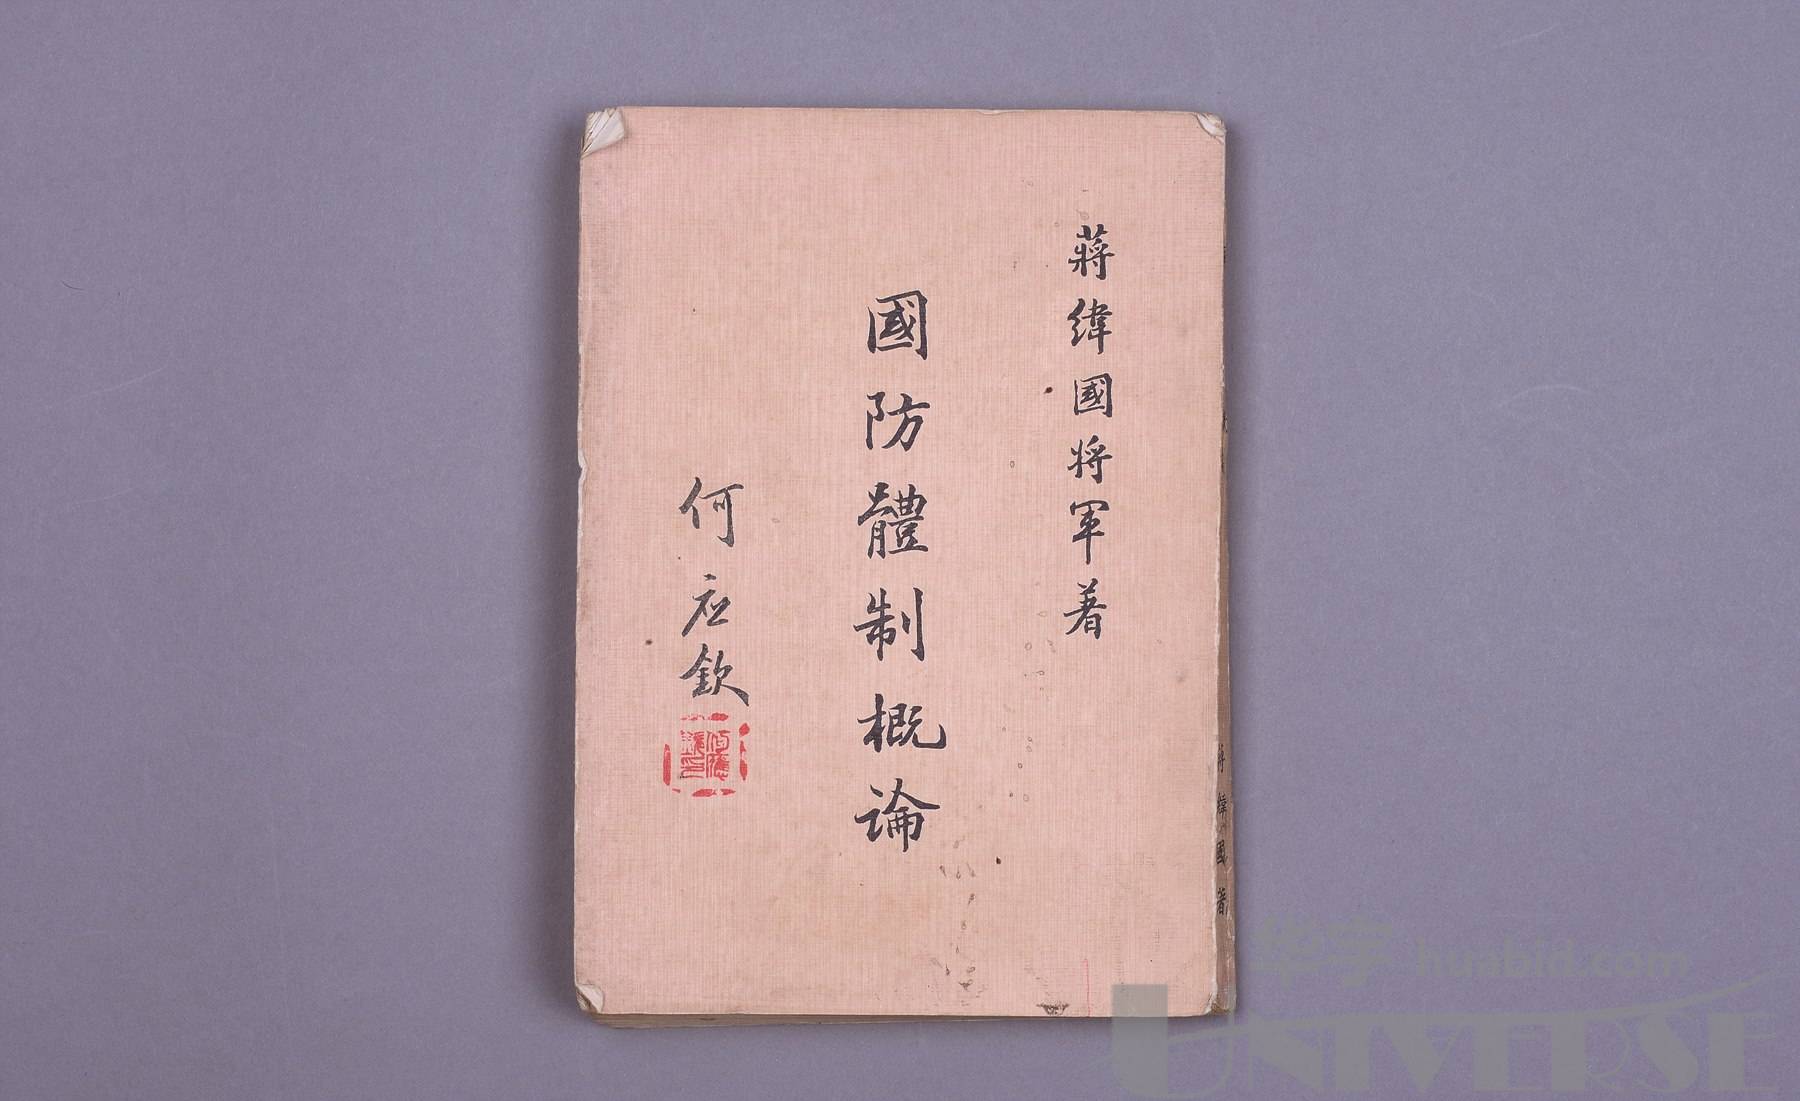 蔣緯國將軍著
國防體制概論
何应欽
何應欽印
蔣緯國著
华宇 huabid.com
UNIVERSE